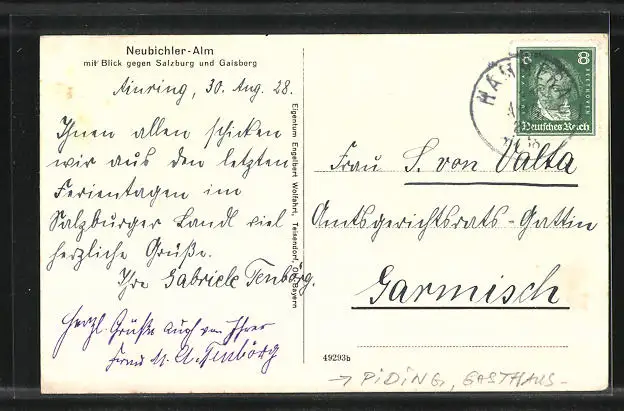 Neubichler-Alm
mit Blick gegen Salzburg und Gaisberg
Ainring, 30. Aug. 28.
Ihnen allen schicken
wir aus den letzten
Ferientagen im
Salzburger Land viel
herzliche Grüße.
Ihre Gabriele Tenbörg.
Herzl. Grüße auch von Ihrer
Tenbörg
Eigentum Engelbert Wolfahrt, Teisendorf, Ob.-Bayern
49293b
8
BEETHOVEN
Deutsches Reich
HAM
Frau S. von Valta
Amtsgerichtsrats-Gattin
Garmisch
→ PIDING, GASTHAUS-